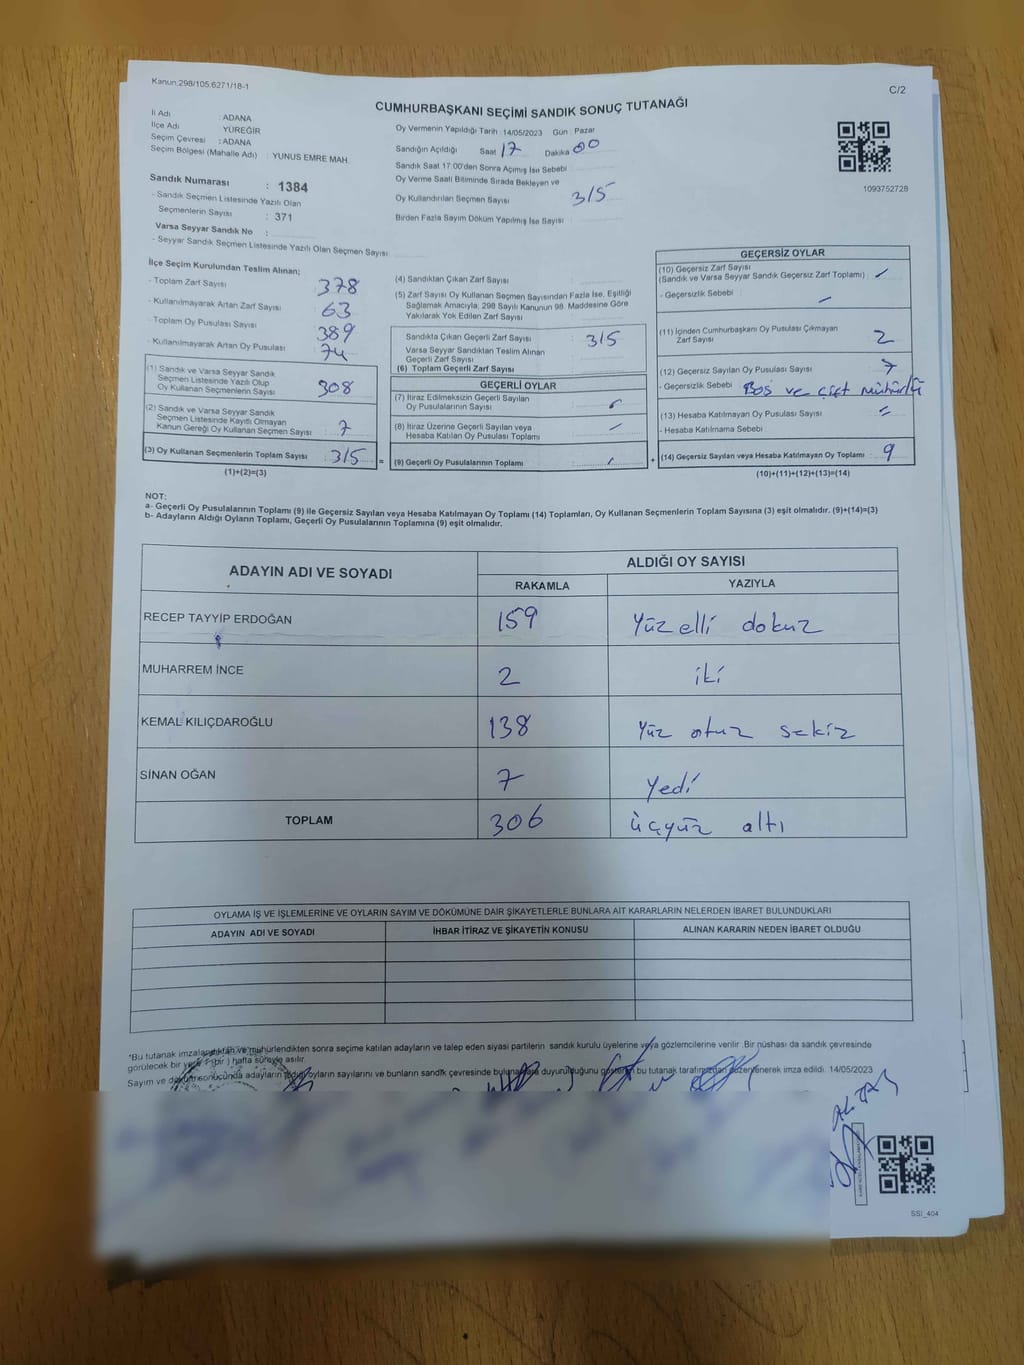 Kanun:298/105.6271/18-1
C/2
CUMHURBAŞKANI SEÇİMİ SANDIK SONUÇ TUTANAĞI
İli Adı : ADANA
İlçe Adı : YÜREĞİR
Seçim Çevresi : ADANA
Seçim Bölgesi (Mahalle Adı) : YUNUS EMRE MAH.
Sandık Numarası : 1384
- Sandık Seçmen Listesinde Yazılı Olan
Seçmenlerin Sayısı : 371
Varsa Seyyar Sandık No :
- Seyyar Sandık Seçmen Listesinde Yazılı Olan Seçmen Sayısı
Oy Vermenin Yapıldığı Tarih : 14/05/2023 Gün : Pazar
Sandığın Açıldığı Saat 17 Dakika 00
Sandık Saat 17:00'den Sonra Açımış İse Sebebi
Oy Verme Saati Bitiminde Sırada Bekleyen ve
Oy Kullandırılan Seçmen Sayısı 315
Birden Fazla Sayım Döküm Yapılmış İse Sayısı
1093752728
İlçe Seçim Kurulundan Teslim Alınan;
- Toplam Zarf Sayısı 378
- Kullanılmayarak Artan Zarf Sayısı 63
- Toplam Oy Pusulası Sayısı 389
- Kullanılmayarak Artan Oy Pusulası 74
(1) Sandık ve Varsa Seyyar Sandık
Seçmen Listesinde Yazılı Olup
Oy Kullanan Seçmenlerin Sayısı 308
(2) Sandık ve Varsa Seyyar Sandık
Seçmen Listesinde Kayıtlı Olmayan
Kanun Gereği Oy Kullanan Seçmen Sayısı : 7
(3) Oy Kullanan Seçmenlerin Toplam Sayısı : 315 =
(1)+(2)=(3)
(4) Sandıktan Çıkan Zarf Sayısı
(5) Zarf Sayısı Oy Kullanan Seçmen Sayısından Fazla İse, Eşitliği
Sağlamak Amacıyla, 298 Sayılı Kanunun 98. Maddesine Göre
Yakılarak Yok Edilen Zarf Sayısı
Sandıkta Çıkan Geçerli Zarf Sayısı : 315
Varsa Seyyar Sandıktan Teslim Alınan
Geçerli Zarf Sayısı
(6) Toplam Geçerli Zarf Sayısı
GEÇERLİ OYLAR
(7) İtiraz Edilmeksizin Geçerli Sayılan
Oy Pusulalarının Sayısı
(8) İtiraz Üzerine Geçerli Sayılan veya
Hesaba Katılan Oy Pusulası Toplamı
(9) Geçerli Oy Pusulalarının Toplamı +
GEÇERSİZ OYLAR
(10) Geçersiz Zarf Sayısı
(Sandık ve Varsa Seyyar Sandık Geçersiz Zarf Toplamı) :
- Geçersizlik Sebebi :
(11) İçinden Cumhurbaşkanı Oy Pusulası Çıkmayan
Zarf Sayısı 2
(12) Geçersiz Sayılan Oy Pusulası Sayısı : 7
- Geçersizlik Sebebi Boş ve çift mühürlü
(13) Hesaba Katılmayan Oy Pusulası Sayısı :
- Hesaba Katılmama Sebebi :
(14) Geçersiz Sayılan veya Hesaba Katılmayan Oy Toplamı : 9
(10)+(11)+(12)+(13)=(14)
NOT:
a- Geçerli Oy Pusulalarının Toplamı (9) ile Geçersiz Sayılan veya Hesaba Katılmayan Oy Toplamı (14) Toplamları, Oy Kullanan Seçmenlerin Toplam Sayısına (3) eşit olmalıdır. (9)+(14)=(3)
b- Adayların Aldığı Oyların Toplamı, Geçerli Oy Pusulalarının Toplamına (9) eşit olmalıdır.
ADAYIN ADI VE SOYADI
ALDIĞI OY SAYISI
RAKAMLA YAZIYLA
RECEP TAYYİP ERDOĞAN 159 Yüz elli dokuz
MUHARREM İNCE 2 iki
KEMAL KILIÇDAROĞLU 138 Yüz otuz sekiz
SİNAN OĞAN 7 Yedi
TOPLAM 306 üçyüz altı
OYLAMA İŞ VE İŞLEMLERİNE VE OYLARIN SAYIM VE DÖKÜMÜNE DAİR ŞİKAYETLERLE BUNLARA AİT KARARLARIN NELERDEN İBARET BULUNDUKLARI
ADAYIN ADI VE SOYADI İHBAR İTİRAZ VE ŞİKAYETİN KONUSU ALINAN KARARIN NEDEN İBARET OLDUĞU
*Bu tutanak imzalandıktan ve mühürlendikten sonra seçime katılan adayların ve talep eden siyasi partilerin sandık kurulu üyelerine veya gözlemcilerine verilir .Bir nüshası da sandık çevresinde
görülecek bir yere 1 (bir ) hafta süreyle asılır.
Sayım ve döküm sonucunda adayların aldığı oyların sayılarını ve bunların sandık çevresinde bulunanlara duyurulduğunu gösteren bu tutanak tarafımızdan düzenlenerek imza edildi. 14/05/2023
SSI_404